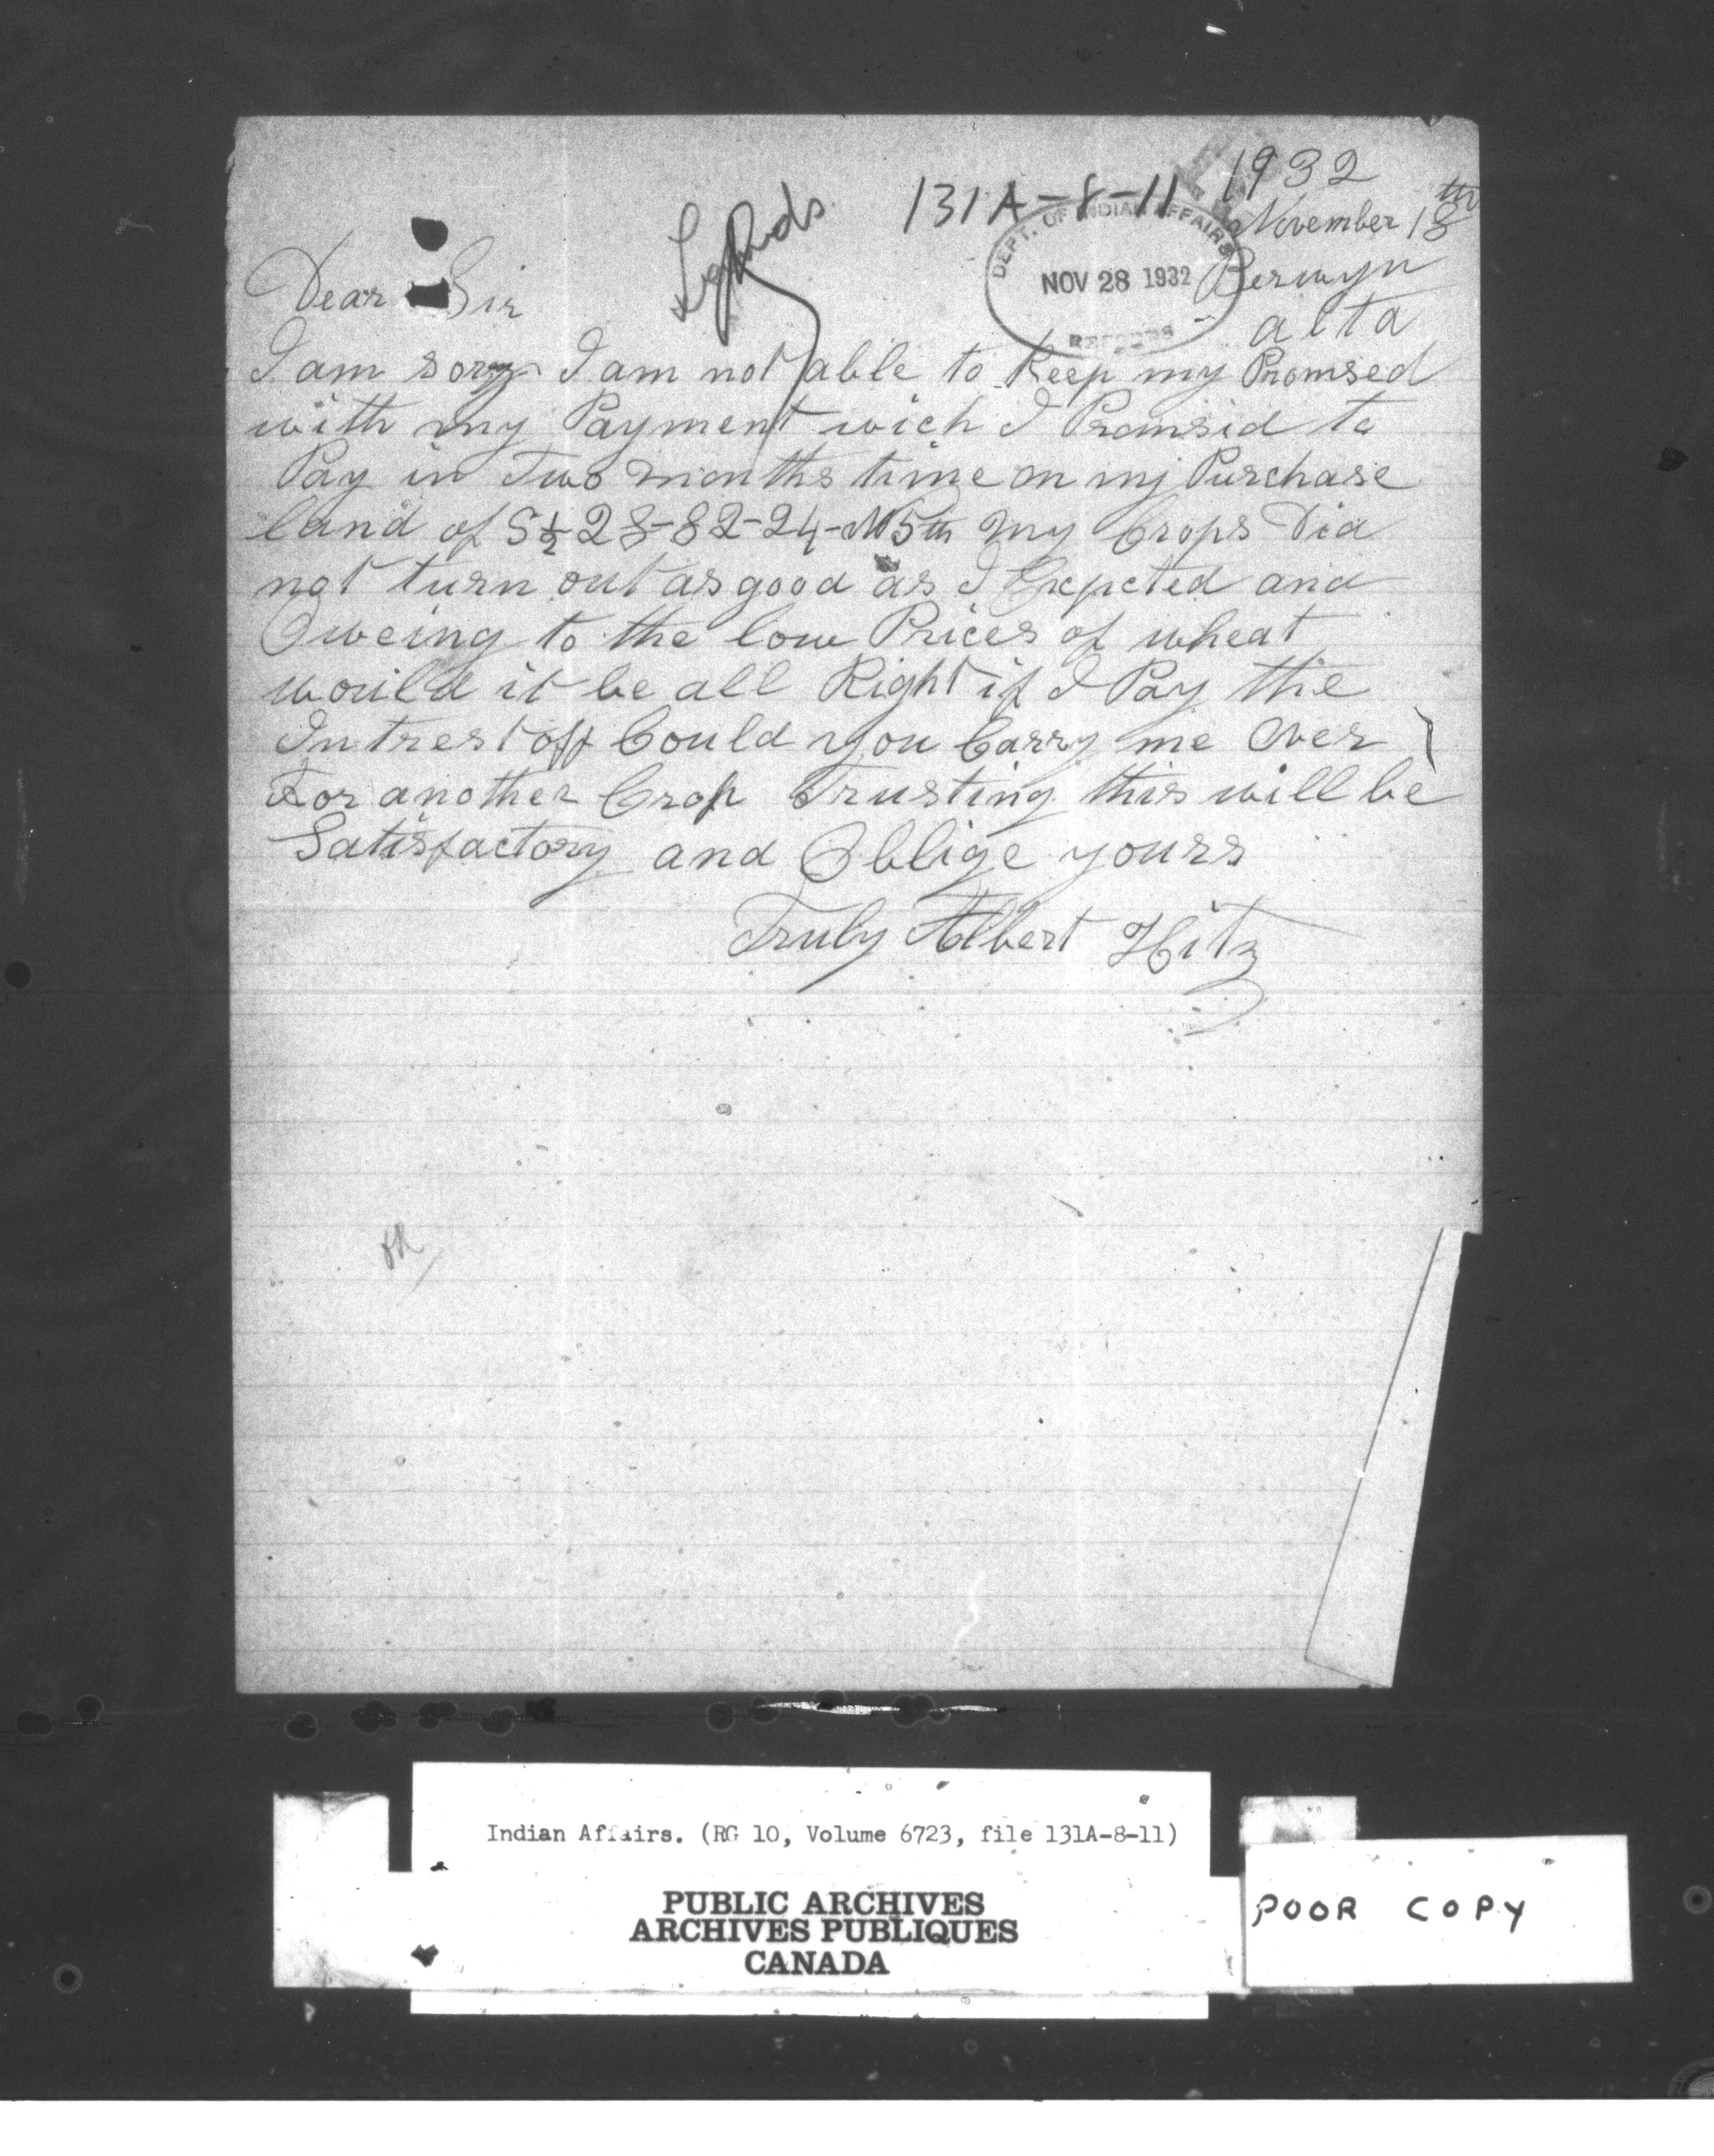 1932
131A-8-11
November 18th
DEPT. OF INDIAN AFFAIRS
NOV 28 1932
RECORDS
Berwyn
alta
Dear Sir
I am sory I am not able to Keep my Promsed
with my Payment wich I Promsid to
Pay in Two months time on my Purchase
land of S½ 28-82-24-W5th My Crops Did
not turn out as good as I Expcted and
Oweing to the low Prices of wheat
would it be all Right if I Pay the
Intrest off Could you Carry me Over
For another Crop Trusting this will be
Satisfactory and Oblige yours
Truly Albert Hitz
Indian Affairs. (RG 10, Volume 6723, file 131A-8-11)
PUBLIC ARCHIVES
ARCHIVES PUBLIQUES
CANADA
POOR COPY